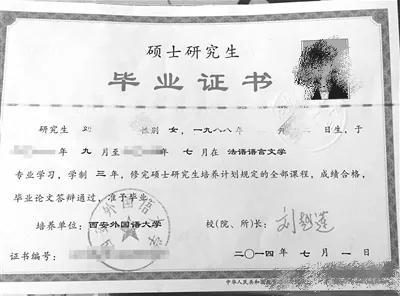 硕士研究生
毕业证书
研究生 性别 女，一九八八年 月 日生，于
年 九 月至 年 七 月在 法语语言文学
专业学习，学制 三 年，修完硕士研究生培养计划规定的全部课程，成绩合格，
毕业论文答辩通过，准予毕业。
培养单位：西安外国语大学 校(院、所)长：
证书编号： 二〇一四年 七 月 一 日
中华人民共和国教育